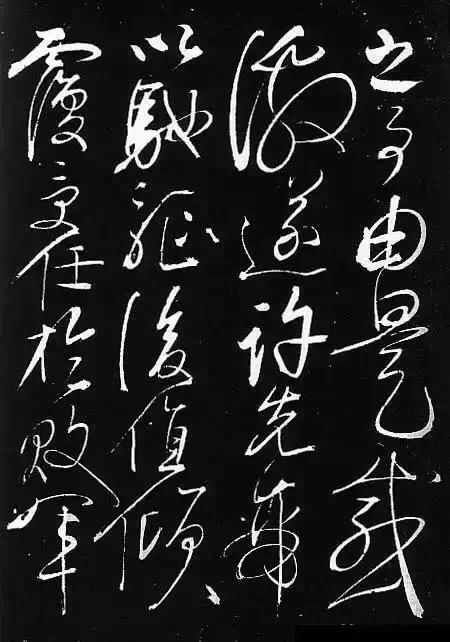 之事由是感
激遂許先帝
以馳驅後值傾
覆受任於敗軍